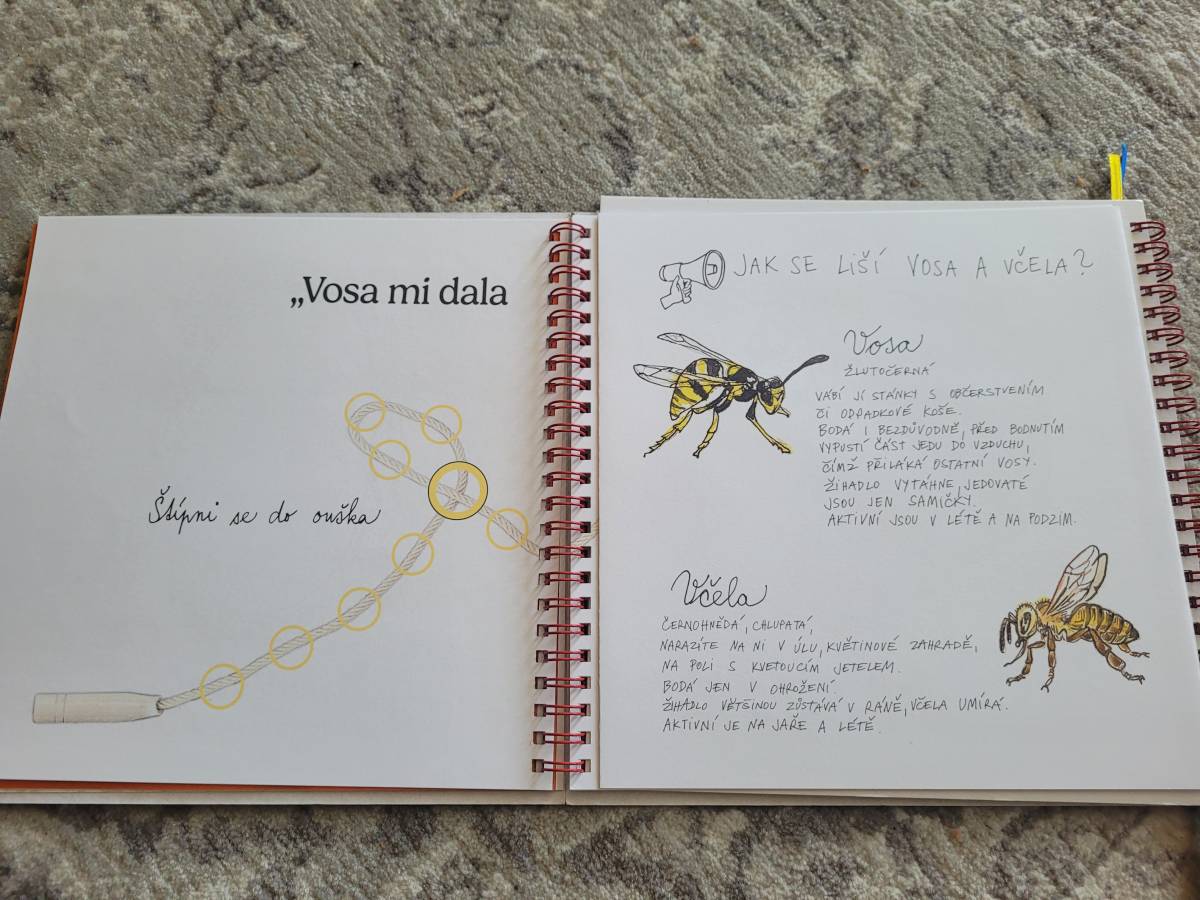 „Vosa mi dala
Štípni se do ouška
JAK SE LIŠÍ VOSA A VČELA?
Vosa
ŽLUTOČERNÁ
VÁBÍ JÍ STÁNKY S OBČERSTVENÍM
ČI ODPADKOVÉ KOŠE.
BODÁ I BEZDŮVODNĚ, PŘED BODNUTÍM
VYPUSTÍ ČÁST JEDU DO VZDUCHU,
ČÍMŽ PŘILÁKÁ OSTATNÍ VOSY.
ŽIHADLO VYTÁHNE, JEDOVATÉ
JSOU JEN SAMIČKY.
AKTIVNÍ JSOU V LÉTĚ A NA PODZIM.
Včela
ČERNOHNĚDÁ, CHLUPATÁ,
NARAZÍTE NA NI V ÚLU, KVĚTINOVÉ ZAHRADĚ,
NA POLI S KVETOUCÍM JETELEM.
BODÁ JEN V OHROŽENÍ.
ŽIHADLO VĚTŠINOU ZŮSTÁVÁ V RÁNĚ, VČELA UMÍRÁ.
AKTIVNÍ JE NA JAŘE A LÉTĚ.